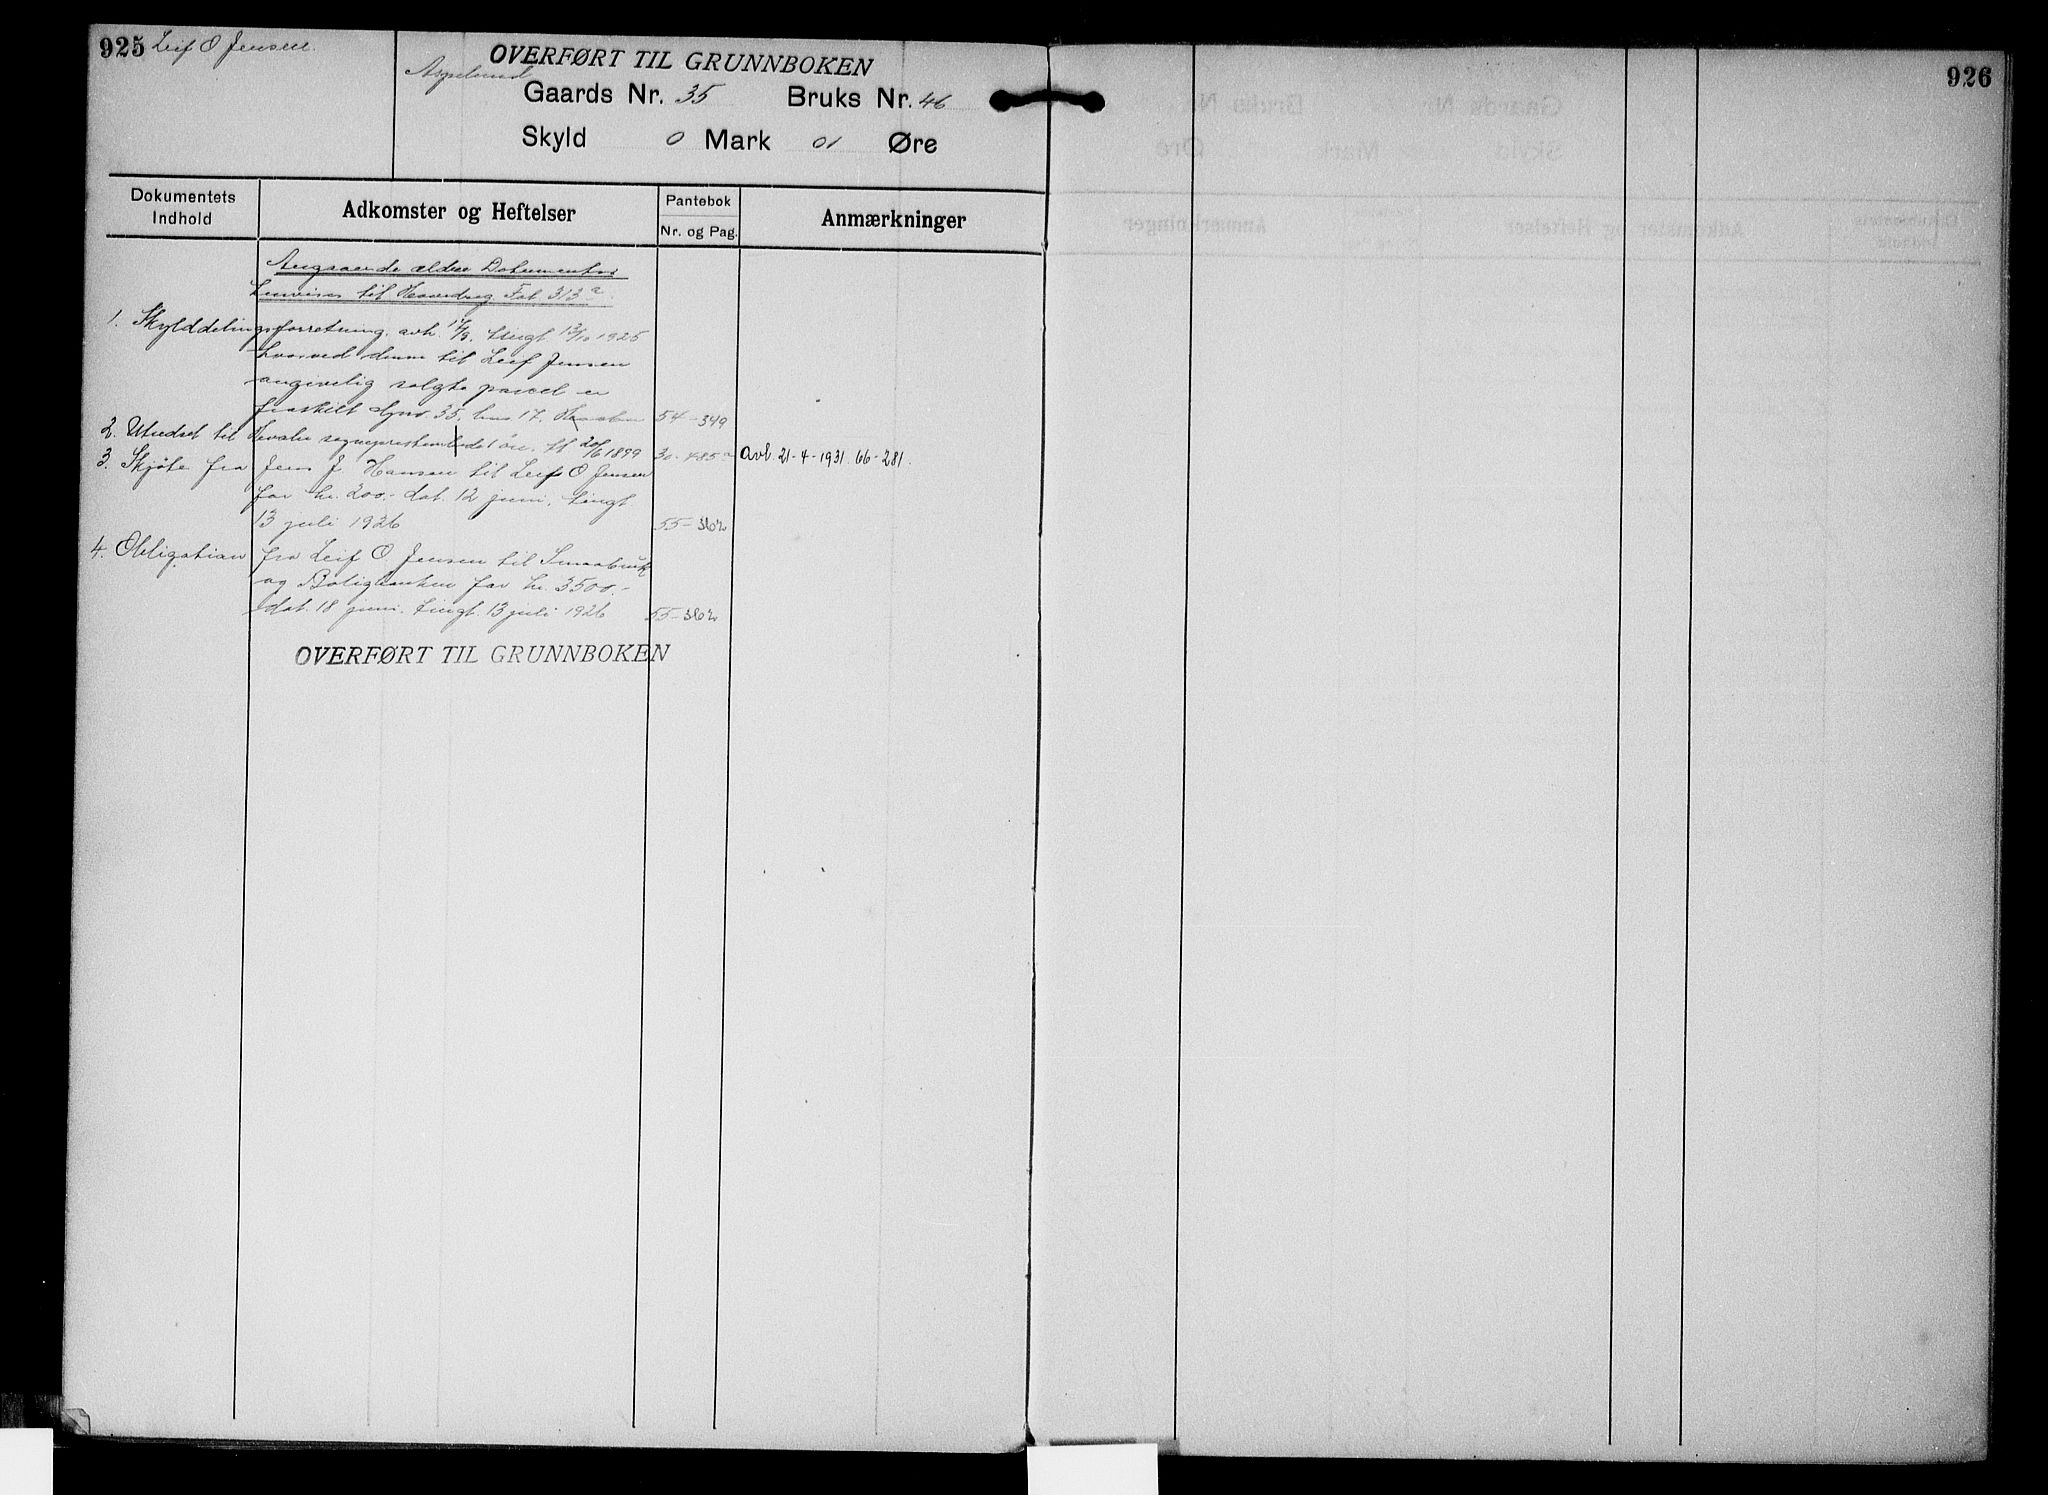 925 Leif O Jensen.
OVERFØRT TIL GRUNNBOKEN
Aspelund
Gaards Nr. 35 Bruks Nr. 46
Skyld 0 Mark 01 Øre
Dokumentets Indhold
Adkomster og Heftelser
Pantebok
Nr. og Pag.
Anmærkninger
Angaaende ældre Dokumenter
henvises til Hovedreg Fol 313a
1. Skylddelingsforretning avh. 17/9. tingl 13/10 1925
hvorved denne til Leif Jensen
angivelig solgte parcel er
fraskilt gnr. 35, bnr 17. 54-349
2. Utredsel til Hvaler sogneprestembede 1 öre. tl 20/6 1899 30-485a avl. 21-4-1931. 66-281.
3. Skjöte fra Jens J. Hansen til Leif O Jensen
for kr. 200.- dat. 12 juni. tingl.
13 juli 1926 55-362
4. Obligation fra Leif O Jensen til Smaabruk
og Boligbanken for kr. 3500.-
dat. 18 juni. tingl. 13 juli 1926 55-362
OVERFØRT TIL GRUNNBOKEN
926